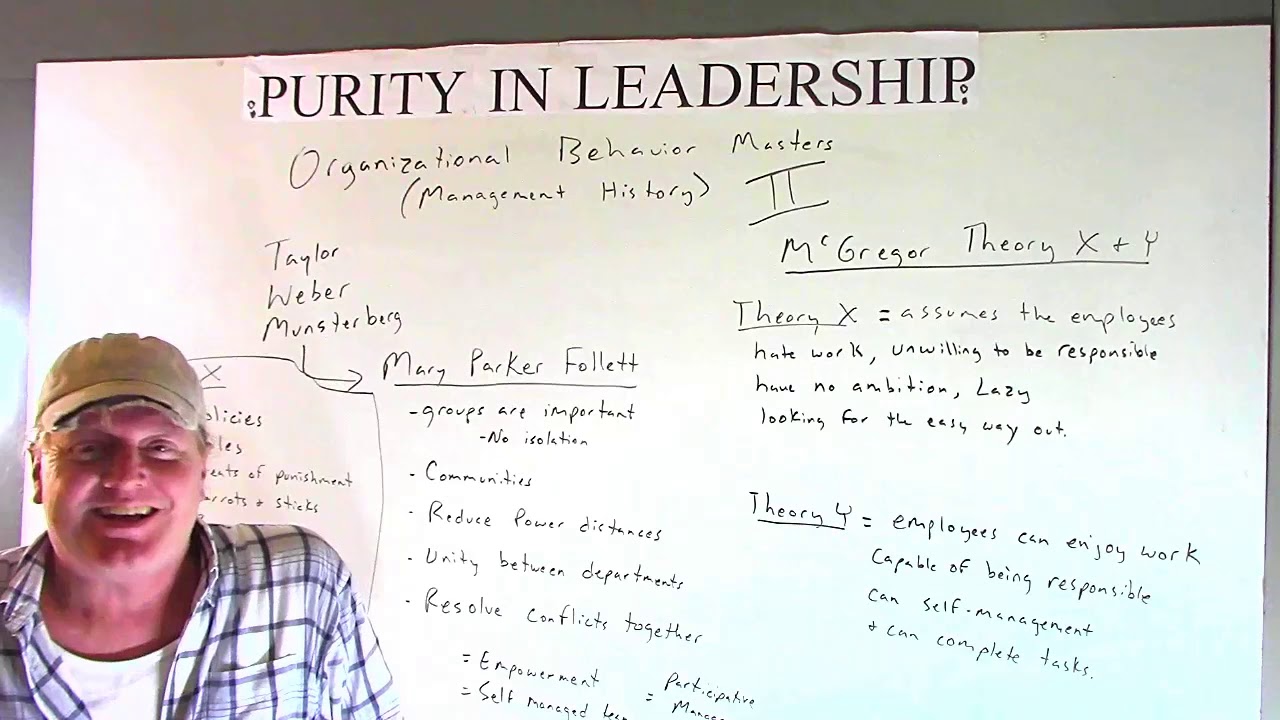 PURITY IN LEADERSHIP
Organizational Behavior Masters
(Management History) II
Taylor
Weber
Munsterberg
X
olicies
les
eats of punishment
arrots + sticks
Mary Parker Follett
-groups are important
-No isolation
- Communities
- Reduce Power distances
- Unity between departments
- Resolve Conflicts together
= Empowerment
= Self managed
= Participative
McGregor Theory X + Y
Theory X = assumes the employees
hate work, unwilling to be responsible
have no ambition, Lazy
looking for the easy way out.
Theory Y = employees can enjoy work
Capable of being responsible
can self-management
+ can complete tasks.